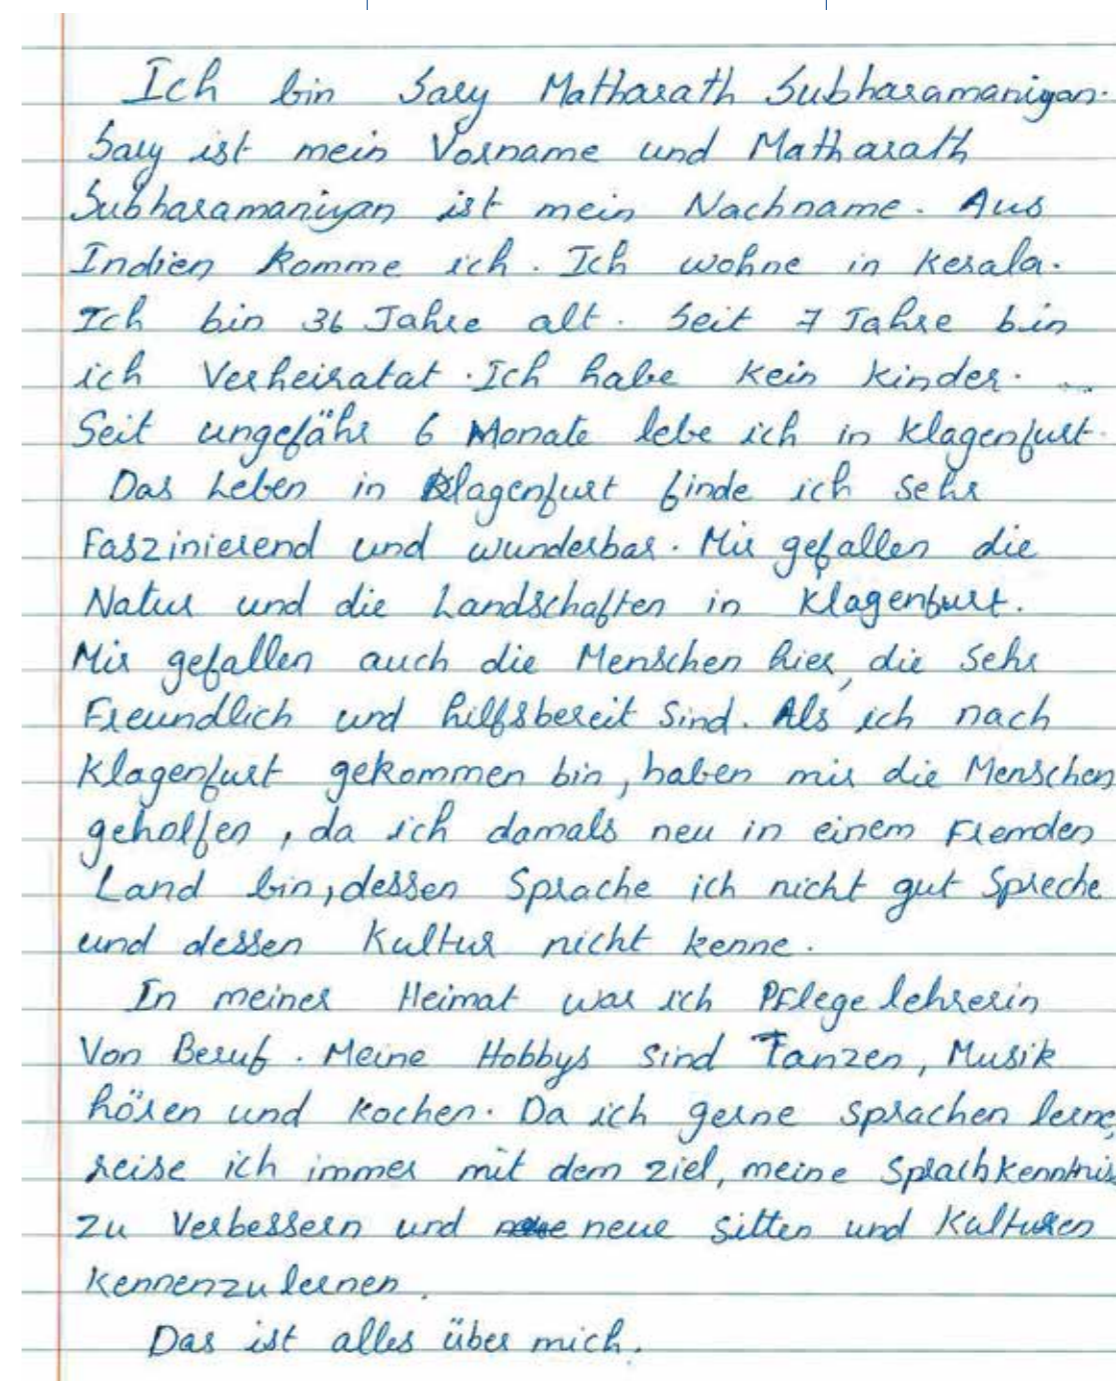 Ich bin Sary Matharath Subharamaniyan.
Sary ist mein Vorname und Matharath
Subharamaniyan ist mein Nachname. Aus
Indien komme ich. Ich wohne in Kerala.
Ich bin 36 Jahre alt. Seit 7 Jahre bin
ich Verheiratat. Ich habe kein kinder.
Seit ungefähr 6 Monate lebe ich in Klagenfurt.
Das Leben in Klagenfurt finde ich sehr
Faszinierend und wunderbar. Mir gefallen die
Natur und die Landschaften in Klagenfurt.
Mir gefallen auch die Menschen hier, die sehr
Freundlich und hilfsbereit Sind. Als ich nach
Klagenfurt gekommen bin, haben mir die Menschen
geholfen, da ich damals neu in einem Fremden
Land bin, dessen Sprache ich nicht gut Spreche
und dessen Kultur nicht kenne.
In meiner Heimat war ich Pflegelehrerin
Von Beruf. Meine Hobbys sind Tanzen, Musik
hören und kochen. Da ich gerne sprachen lerne,
reise ich immer mit dem ziel, meine Sprachkenntnis
zu Verbessern und neue sitten und Kulturen
kennenzulernen.
Das ist alles über mich.